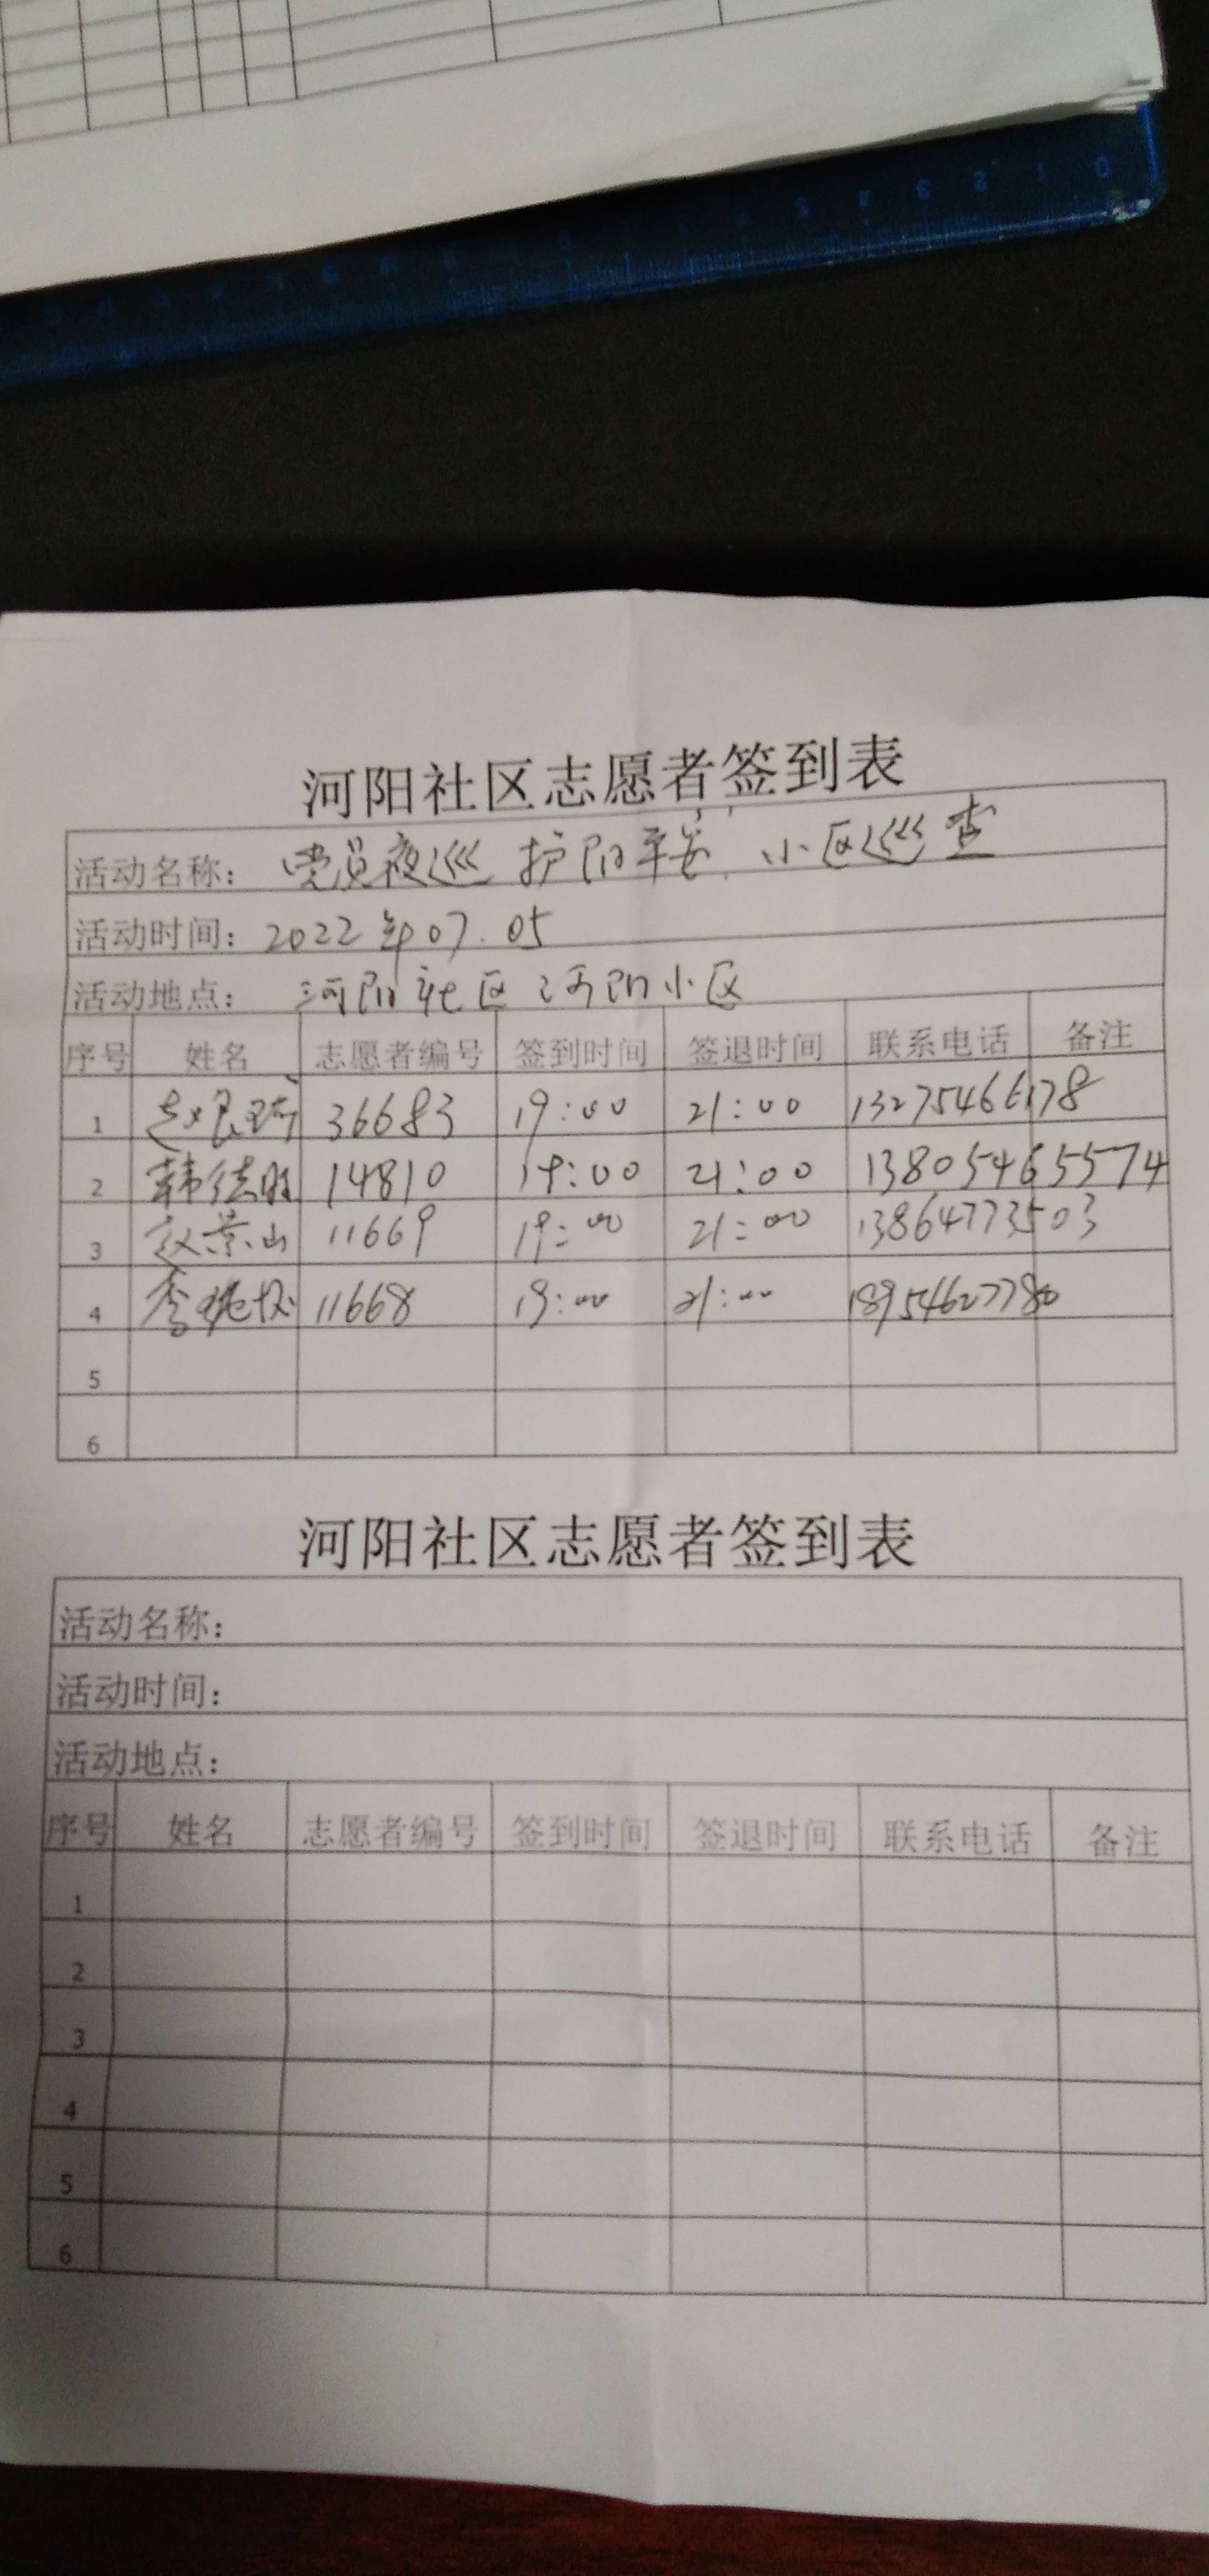 0 1 2 3 4 5
河阳社区志愿者签到表
活动名称: 党员夜巡 护阳平安 小区巡查
活动时间: 2022年07.05
活动地点: 河阳社区河阳小区
序号 姓名 志愿者编号 签到时间 签退时间 联系电话 备注
1 36683 19:00 21:00 13275466178
2 韩德胜 14810 19:00 21:00 13805465574
3 赵景山 11669 19:00 21:00 13864773503
4 11668 19:00 21:00 18954627780
5
6
河阳社区志愿者签到表
活动名称:
活动时间:
活动地点:
序号 姓名 志愿者编号 签到时间 签退时间 联系电话 备注
1
2
3
4
5
6